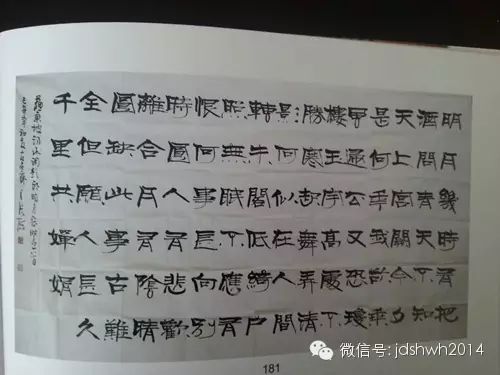 明月幾時有把
酒問青天不知
天上宮闕今夕
是何年我欲乘
風歸去又恐瓊
樓玉宇高處不
勝寒起舞弄清
影何似在人間
轉朱閣低綺戶
照無眠不應有
恨何事長向別
時圓人有悲歡
離合月有陰晴
圓缺此事古難
全但願人長久
千里共嬋娟
蘇東坡詞水調歌頭
181
微信号: jdshwh2014